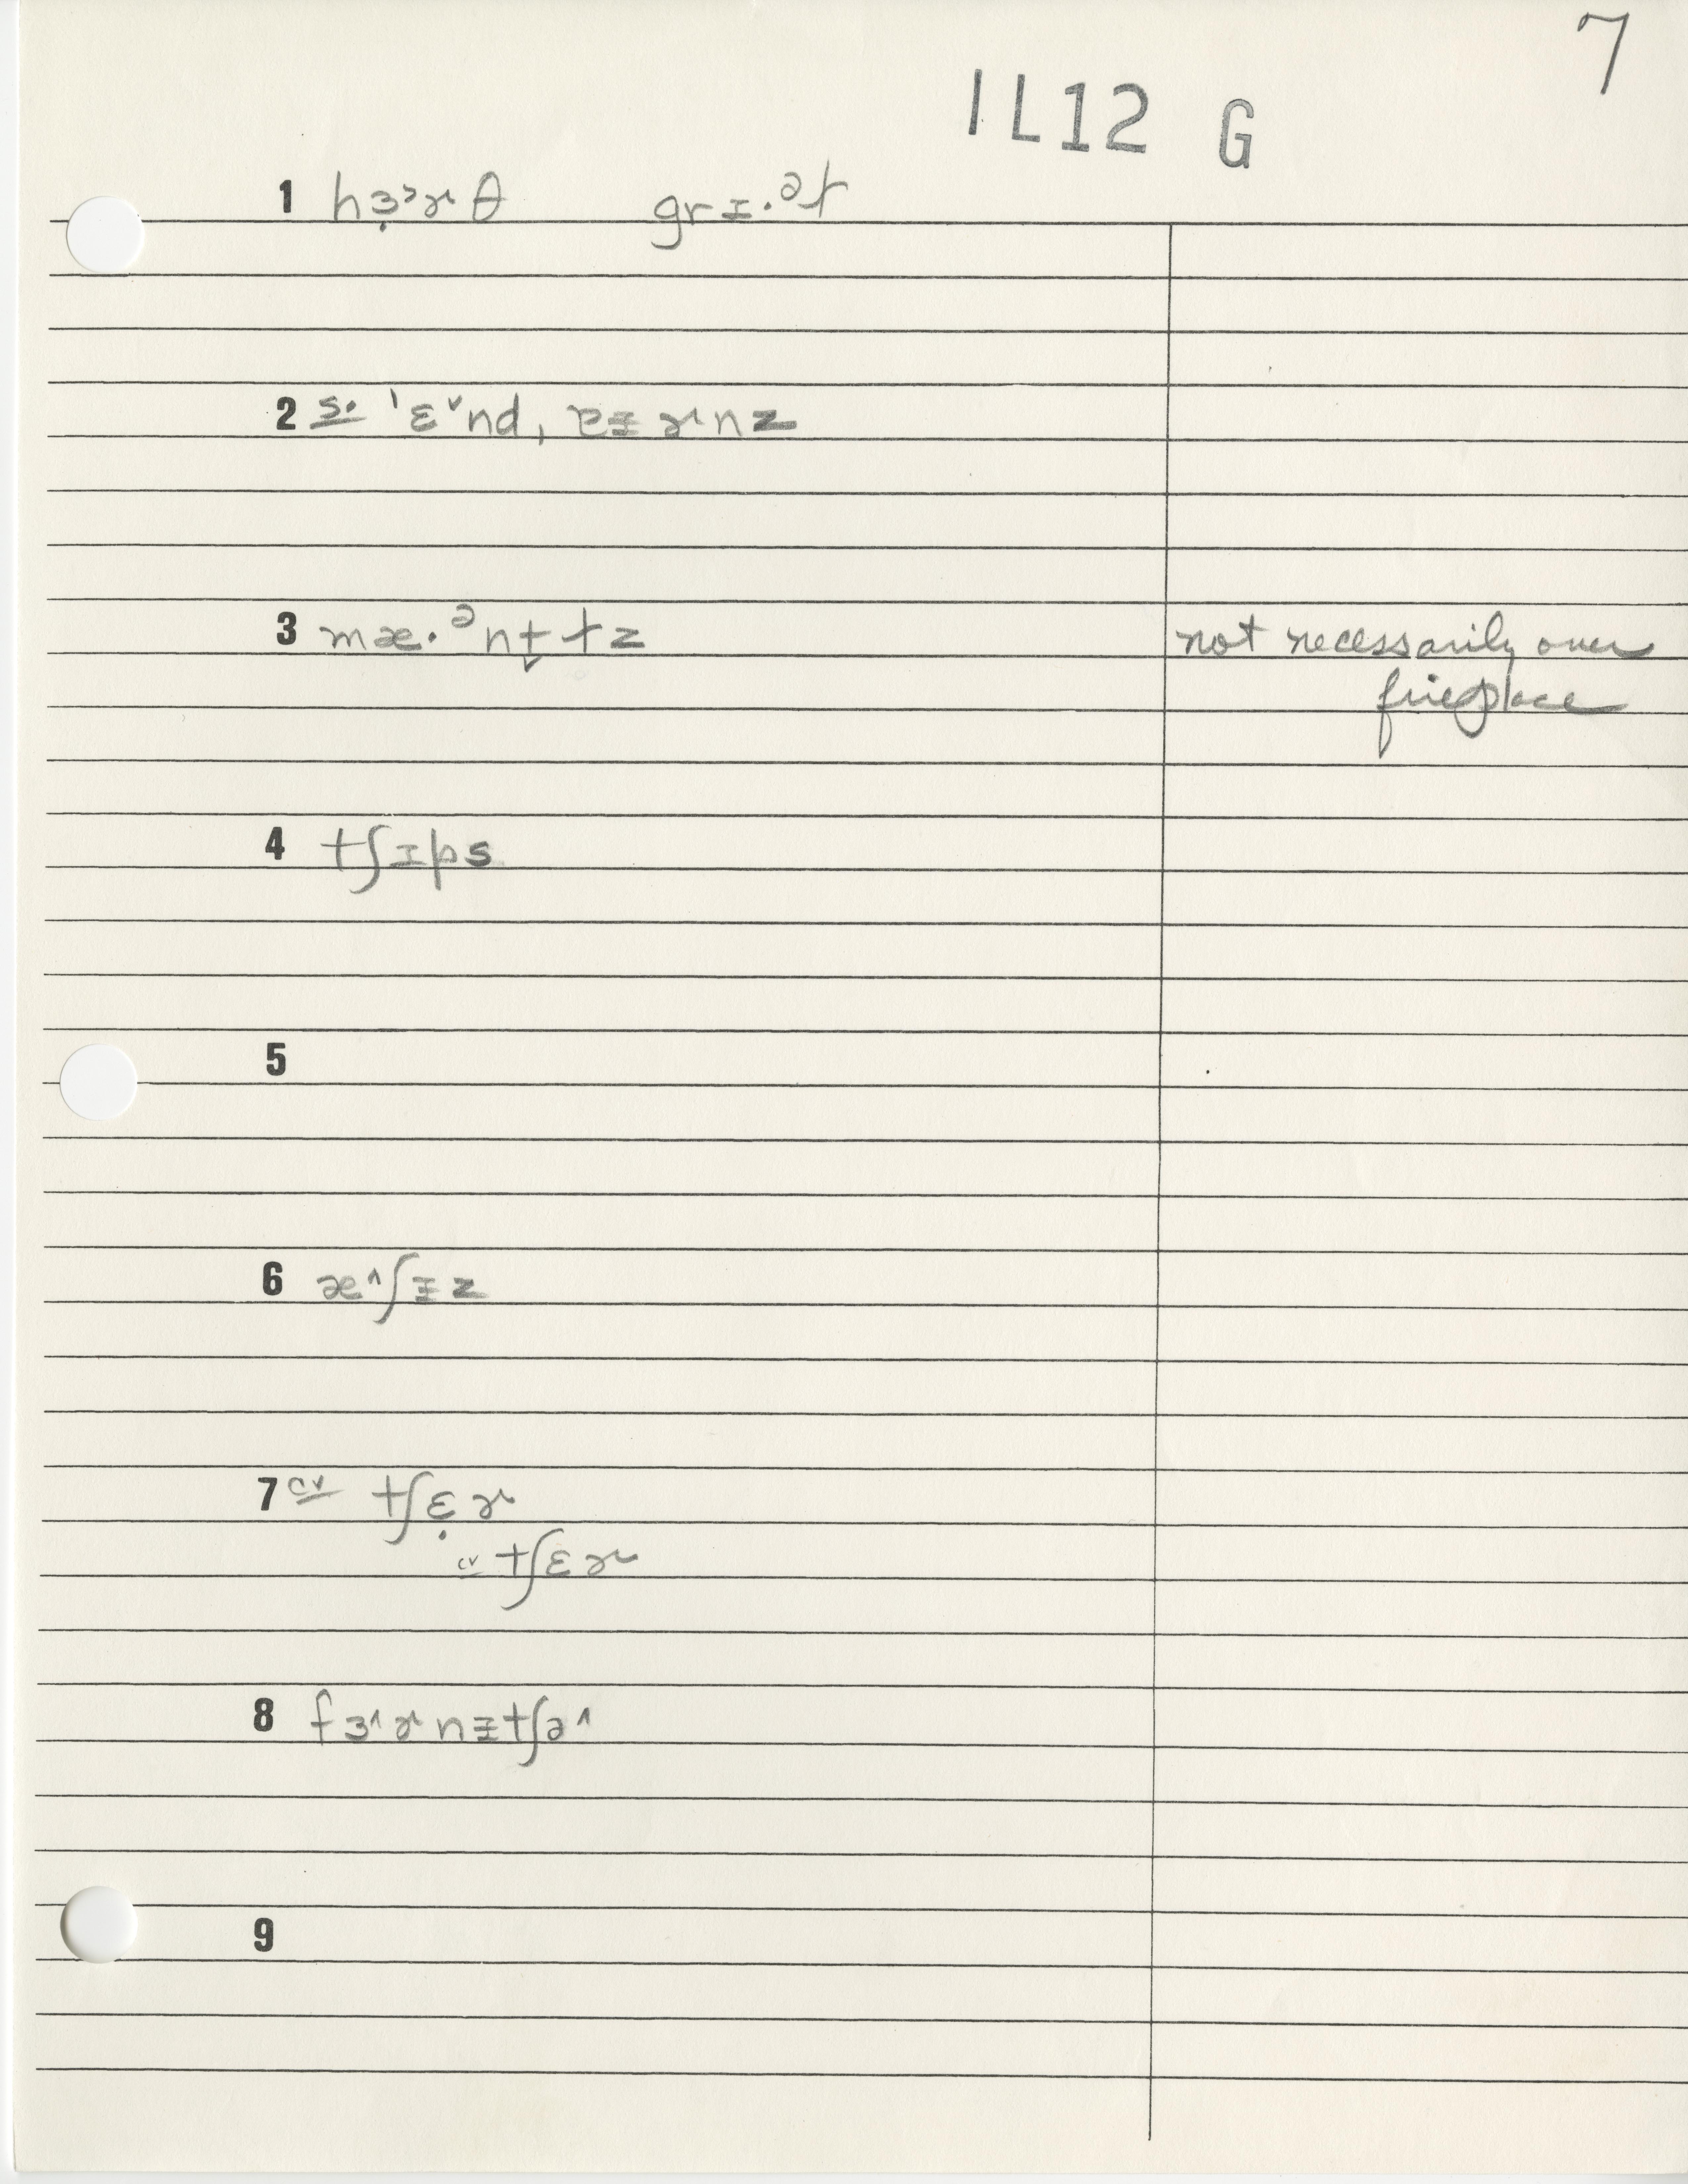 7
IL12 G
1 hɜ̣˃ɚθ grɪ·ᵊɫ
2 s· ˈɛ˅nd, aᵻɚnz
3 mæ·ᵊnt̬ɫz not necessarily over
fireplace
4 tʃɪps
5
6 æ˄ʃᵻz
7 cv tʃɛ̣ɚ
cv tʃɛɚ
8 fɜ˄ɚnᵻtʃə˄
9